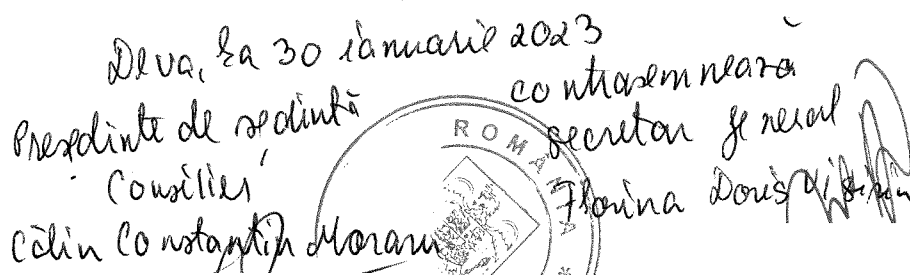 Deva, la 30 ianuarie 2023
Președinte de ședință
Consilier
Călin Constantin Moraru
contrasemnează
secretar general
Florina Doris
ROMÂNIA *